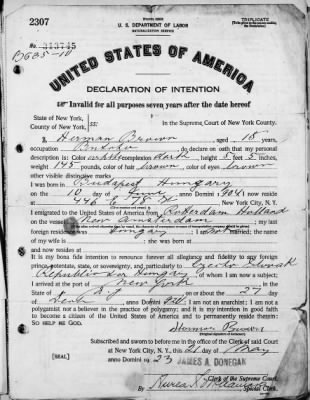 2307
U. S. DEPARTMENT OF LABOR
NATURALIZATION SERVICE
TRIPLICATE
No. 313745
UNITED STATES OF AMERICA
DECLARATION OF INTENTION
Invalid for all purposes seven years after the date hereof
State of New York,
County of New York,
ss:
In the Supreme Court of New York County.
I, Herman Brown, aged 18 years,
occupation, do declare on oath that my personal
description is: Color white, complexion dark, height 5 feet 5 inches,
weight 145 pounds, color of hair brown, color of eyes brown
other visible distinctive marks
I was born in Budapest Hungary
on the 10 day of, anno Domini; I now reside at
446 E 78 St, New York City, N. Y.
I emigrated to the United States of America from Roterdam Holland
on the vessel New Amsterdam; my last
foreign residence was Hungary; I am not married; the name of
my wife is; she was born at
and now resides at
It is my bona fide intention to renounce forever all allegiance and fidelity to any foreign
prince, potentate, state, or sovereignty, and particularly to Czecho Slovak
Republic Hungary, of whom I am now a subject;
I arrived at the port of New York, in the
State of N Y, on or about the 27 day
of, anno Domini; I am not an anarchist; I am not a
polygamist nor a believer in the practice of polygamy; and it is my intention in good faith
to become a citizen of the United States of America and to permanently reside therein:
SO HELP ME GOD.
Herman Brown
Subscribed and sworn to before me in the office of the Clerk of said Court
at New York City, N. Y., this day of May
anno Domini 1923
[SEAL]
JAMES A. DONEGAN
Clerk of the Supreme Court.
By
Special Clerk.